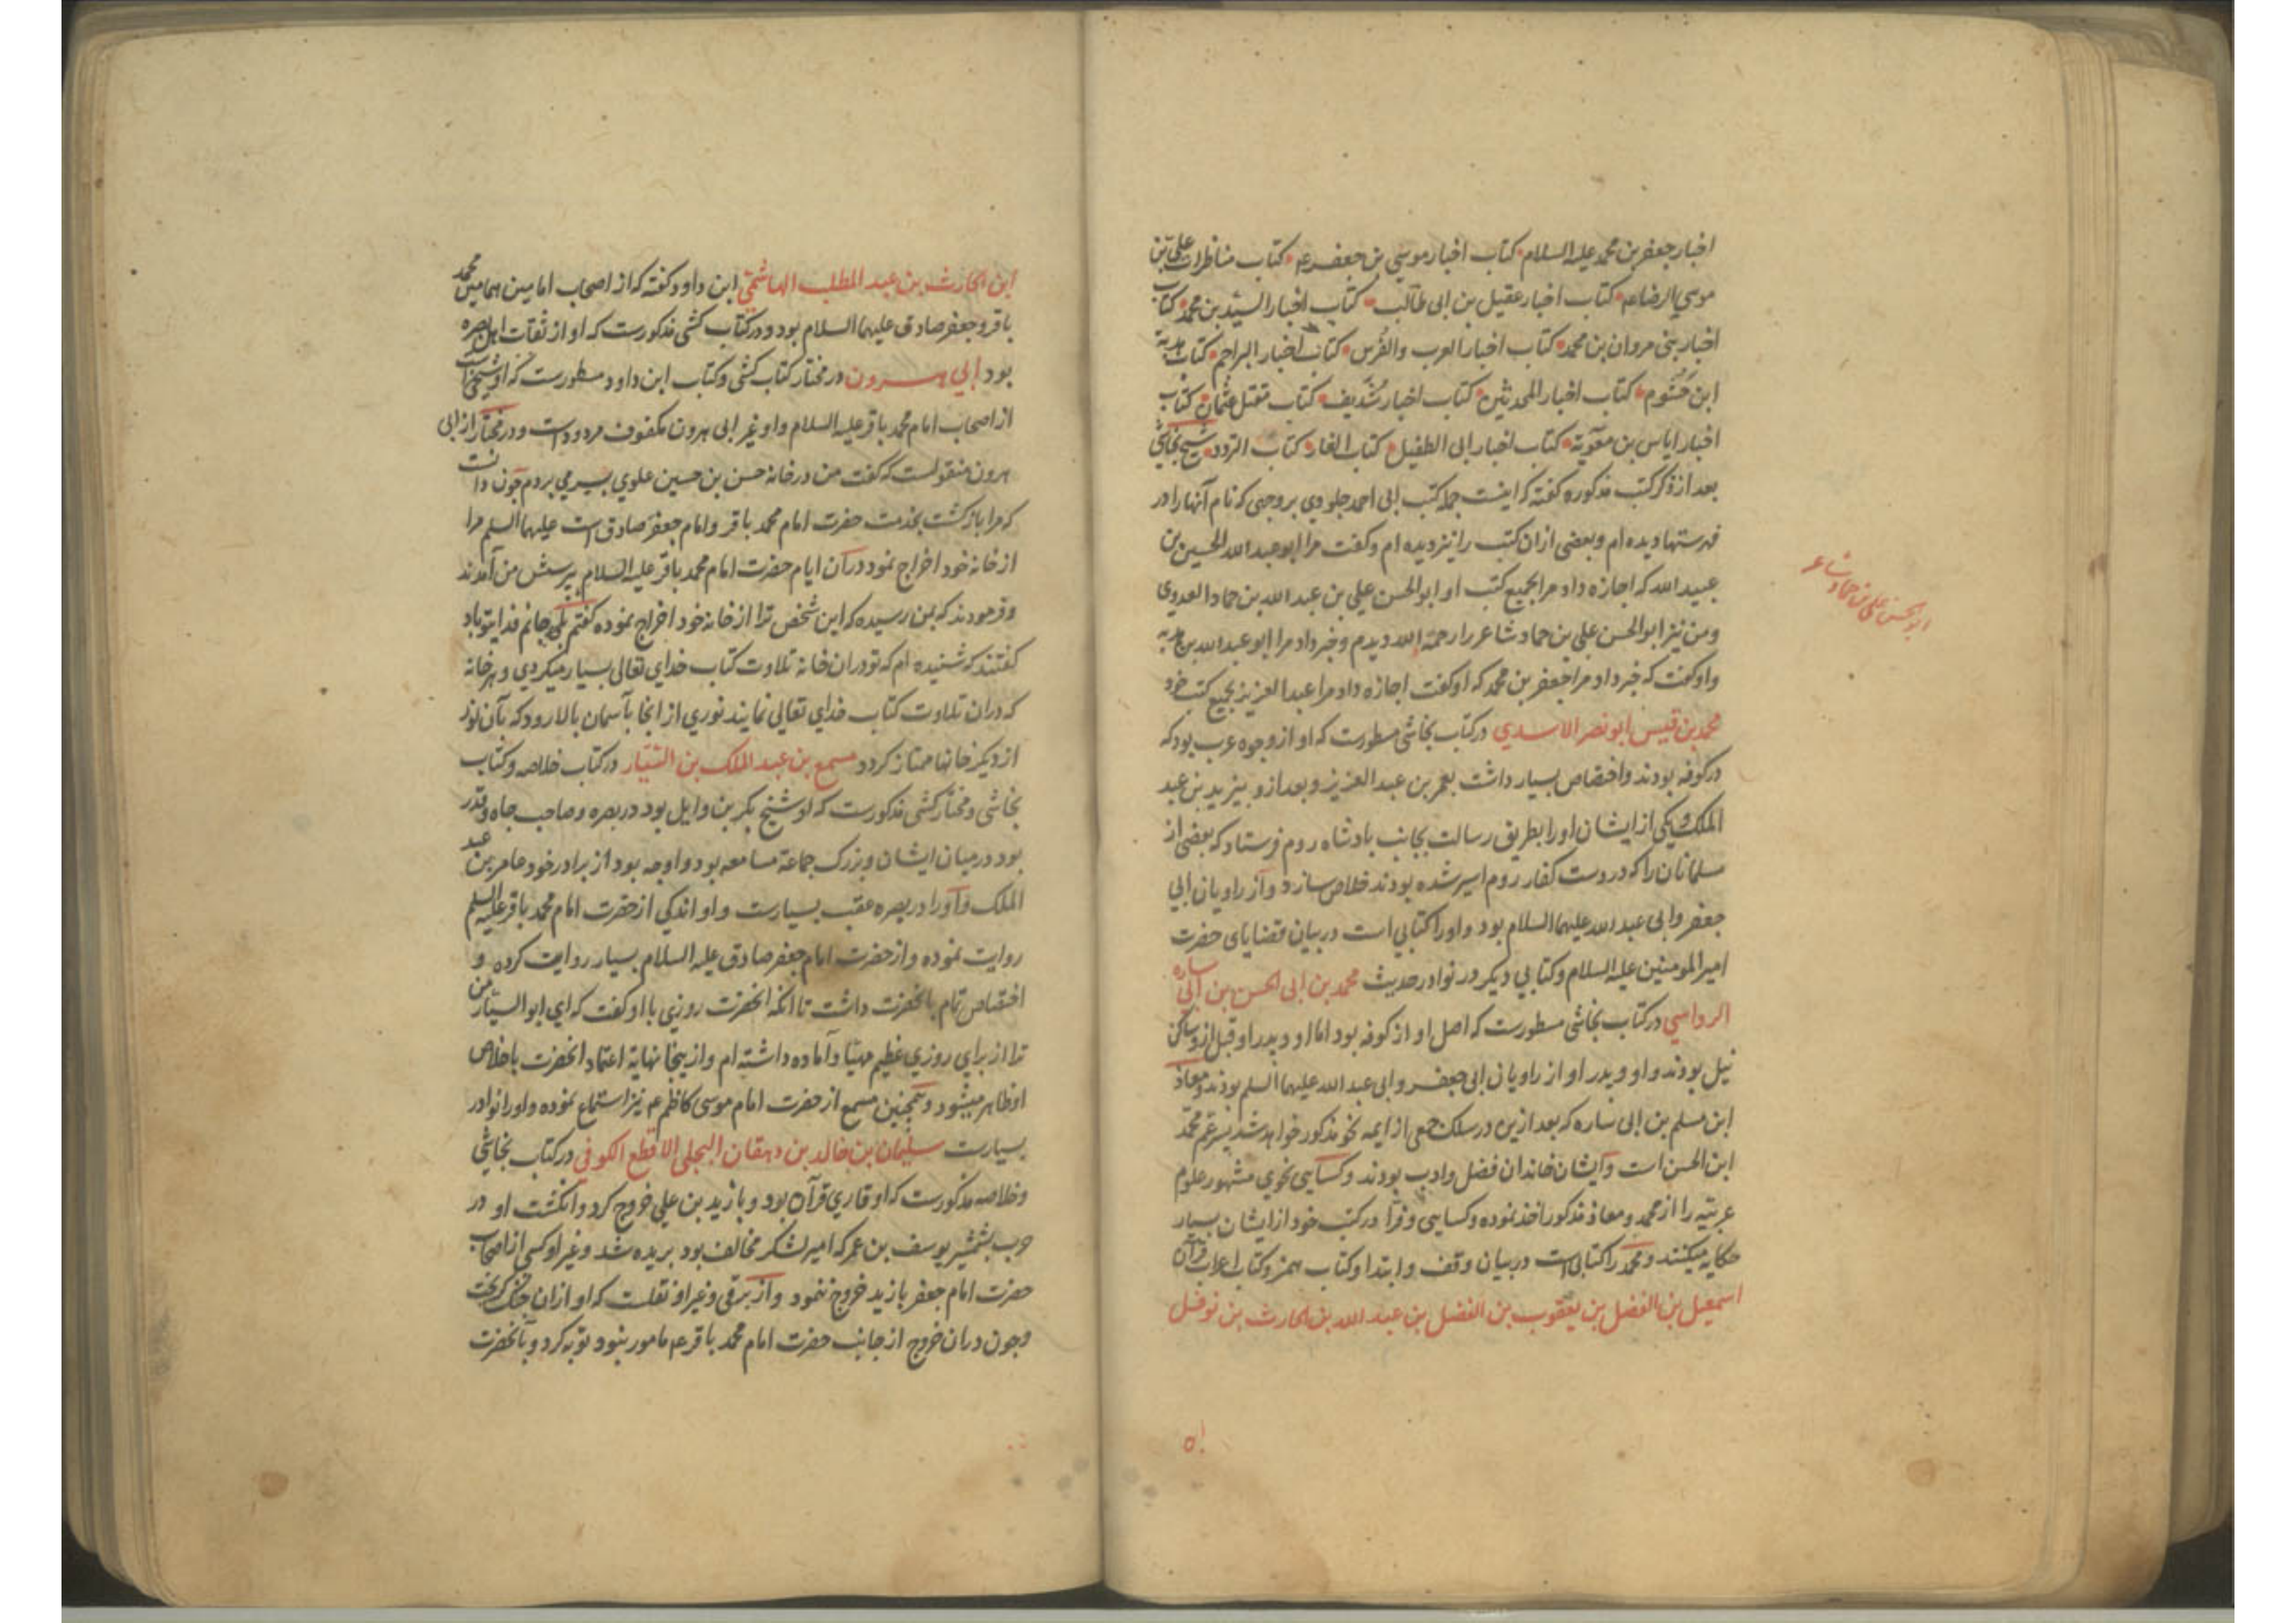 اخبار جعفر بن محمد علیه السلام کتاب اخبار موسی بن جعفر ع کتاب مناظرات علی بن
موسی الرضا ع کتاب اخبار عقیل بن ابی طالب کتاب اخبار السید بن محمد کتاب
اخبار بنی مروان بن محمد کتاب اخبار العرب والفرس کتاب اخبار البراجم کتاب هدبة
ابن خشوم کتاب اخبار المحدثین کتاب اخبار سُدَیف کتاب مقتل عثمان کتاب
اخبار ایاس بن معویة کتاب اخبار ابی الطفیل کتاب الغار کتاب القرود شیخ نجاشی
بعد از ذکر کتب مذکوره گفته که اینست جمله کتب ابی احمد جلودی بر وجهی که نام آنها را در
فهرستها دیده ام و بعضی از ان کتب را نیز دیده ام و گفت مرا ابو عبد الله الحسین بن
عبید الله که اجازه داد مرا بجمیع کتب او ابو الحسن علی بن عبد الله بن حماد العدوی
و من نیز ابو الحسن علی بن حماد شاعر را رحمة الله دیدم و خبر داد مرا ابو عبد الله بن هدیه
و او گفت که خبر داد مرا جعفر بن محمد که او گفت اجازه داد مرا عبد العزیز بجمیع کتب خود
محمد بن قیس ابو نصر الاسدی در کتاب نجاشی مسطورست که او از وجوه عرب بود که
در کوفه بودند و اختصاص بسیار داشت بعمر بن عبد العزیز و بعد ازو بیزید بن عبد
الملک و یکی از ایشان او را بطریق رسالت بجانب بادشاه روم فرستاد که بعضی از
مسلمانان را که در دست کفار روم اسیر شده بودند خلاص سازد و از راویان ابی
جعفر و ابی عبد الله علیهما السلام بود و او را کتابی است در بیان قضایای حضرت
امیر المومنین علیه السلام و کتابی دیگر در نوادر حدیث محمد بن ابی الحسن بن ابی ساره
الرواسی در کتاب نجاشی مسطورست که اصل او از کوفه بود اما او و پدر او قبل ازو ساکن
نیل بودند و او و پدر او از راویان ابی جعفر و ابی عبد الله علیهما السلم بودند و معاذ
ابن مسلم بن ابی ساره که بعد ازین در سلک جمعی از ایمه نحو مذکور خواهد شد پسر عم محمد
ابن الحسن است و ایشان خاندان فضل و ادب بودند و کسایی نحوی مشهور علوم
عربیه را از محمد و معاذ مذکور اخذ نموده و کسایی و فرا در کتب خود از ایشان بسیار
حکایه میکنند و محمد را کتابی است در بیان وقف و ابتدا و کتاب همز و کتاب اعراب قرآن
اسمعیل بن الفضل بن یعقوب بن الفضل بن عبد الله بن الحارث بن نوفل
ابو الحسن علی بن حماد شاعر
ابن الحارث بن عبد المطلب الهاشمی ابن داود گفته که از اصحاب امامین همامین محمد
باقر و جعفر صادق علیهما السلام بود و در کتاب کشی مذکورست که او از ثقات اهل بصره
بود ابی هرون در مختار کتاب کشی و کتاب ابن داود مسطورست که او شیخی است
از اصحاب امام محمد باقر علیه السلام و او غیر ابی هرون مکفوف مردودست و در مختار از ابی
هرون منقولست که گفت من در خانه حسن بن حسین علوی بسر می بردم چون دانست
که مرا بازگشت بخدمت حضرت امام محمد باقر و امام جعفر صادق است علیهما السلم مرا
از خانه خود اخراج نمود در آن ایام حضرت امام محمد باقر علیه السلام بپرسش من آمدند
و فرمودند که بمن رسیده که این شخص ترا از خانه خود اخراج نموده گفتم بلی جانم فدایتو باد
گفتند که شنیده ام که تو در ان خانه تلاوت کتاب خدای تعالی بسیار میکردی و هر خانه
که در ان تلاوت کتاب خدای تعالی نمایند نوری از انجا بآسمان بالا رود که بآن نور
از دیگر خانها ممتاز گردد مسمع بن عبد الملک بن السیّار در کتاب خلاصه و کتاب
نجاشی و مختار کشی مذکورست که او شیخ بکر بن وایل بود در بصره و صاحب جاه و قدر
بود در میان ایشان و بزرگ جماعة مسامعه بود و اوجه بود از برادر خود عامر بن عبد
الملک و او را در بصره عقب بسیارست و او اندکی از حضرت امام محمد باقر علیه السلم
روایت نموده و از حضرت امام جعفر صادق علیه السلام بسیار روایت کرده و
اختصاص تام بانحضرت داشت تا انکه انحضرت روزی با او گفت که ای ابو السیّار من
ترا از برای روزی عظیم مهیّا و آماده داشته ام و از ینجا نهایة اعتماد انحضرت باخلاص
او ظاهر میشود و همچنین مسمع از حضرت امام موسی کاظم ع نیز استماع نموده و او را نوادر
بسیارست سلیمان بن خالد بن دهقان البجلی الاقطع الکوفی در کتاب نجاشی
و خلاصه مذکورست که او قاری قرآن بود و با زید بن علی خروج کرد و انکشت او در
حرب بشمشیر یوسف بن عمر که امیر لشکر مخالف بود بریده شد و غیر او کسی از اصحاب
حضرت امام جعفر با زید خروج ننمود و از برقی و غیر او نقلست که او از ان جنک گریخت
و چون در ان خروج از جانب حضرت امام محمد باقر ع مامور بنود توبه کرد و بانحضرت